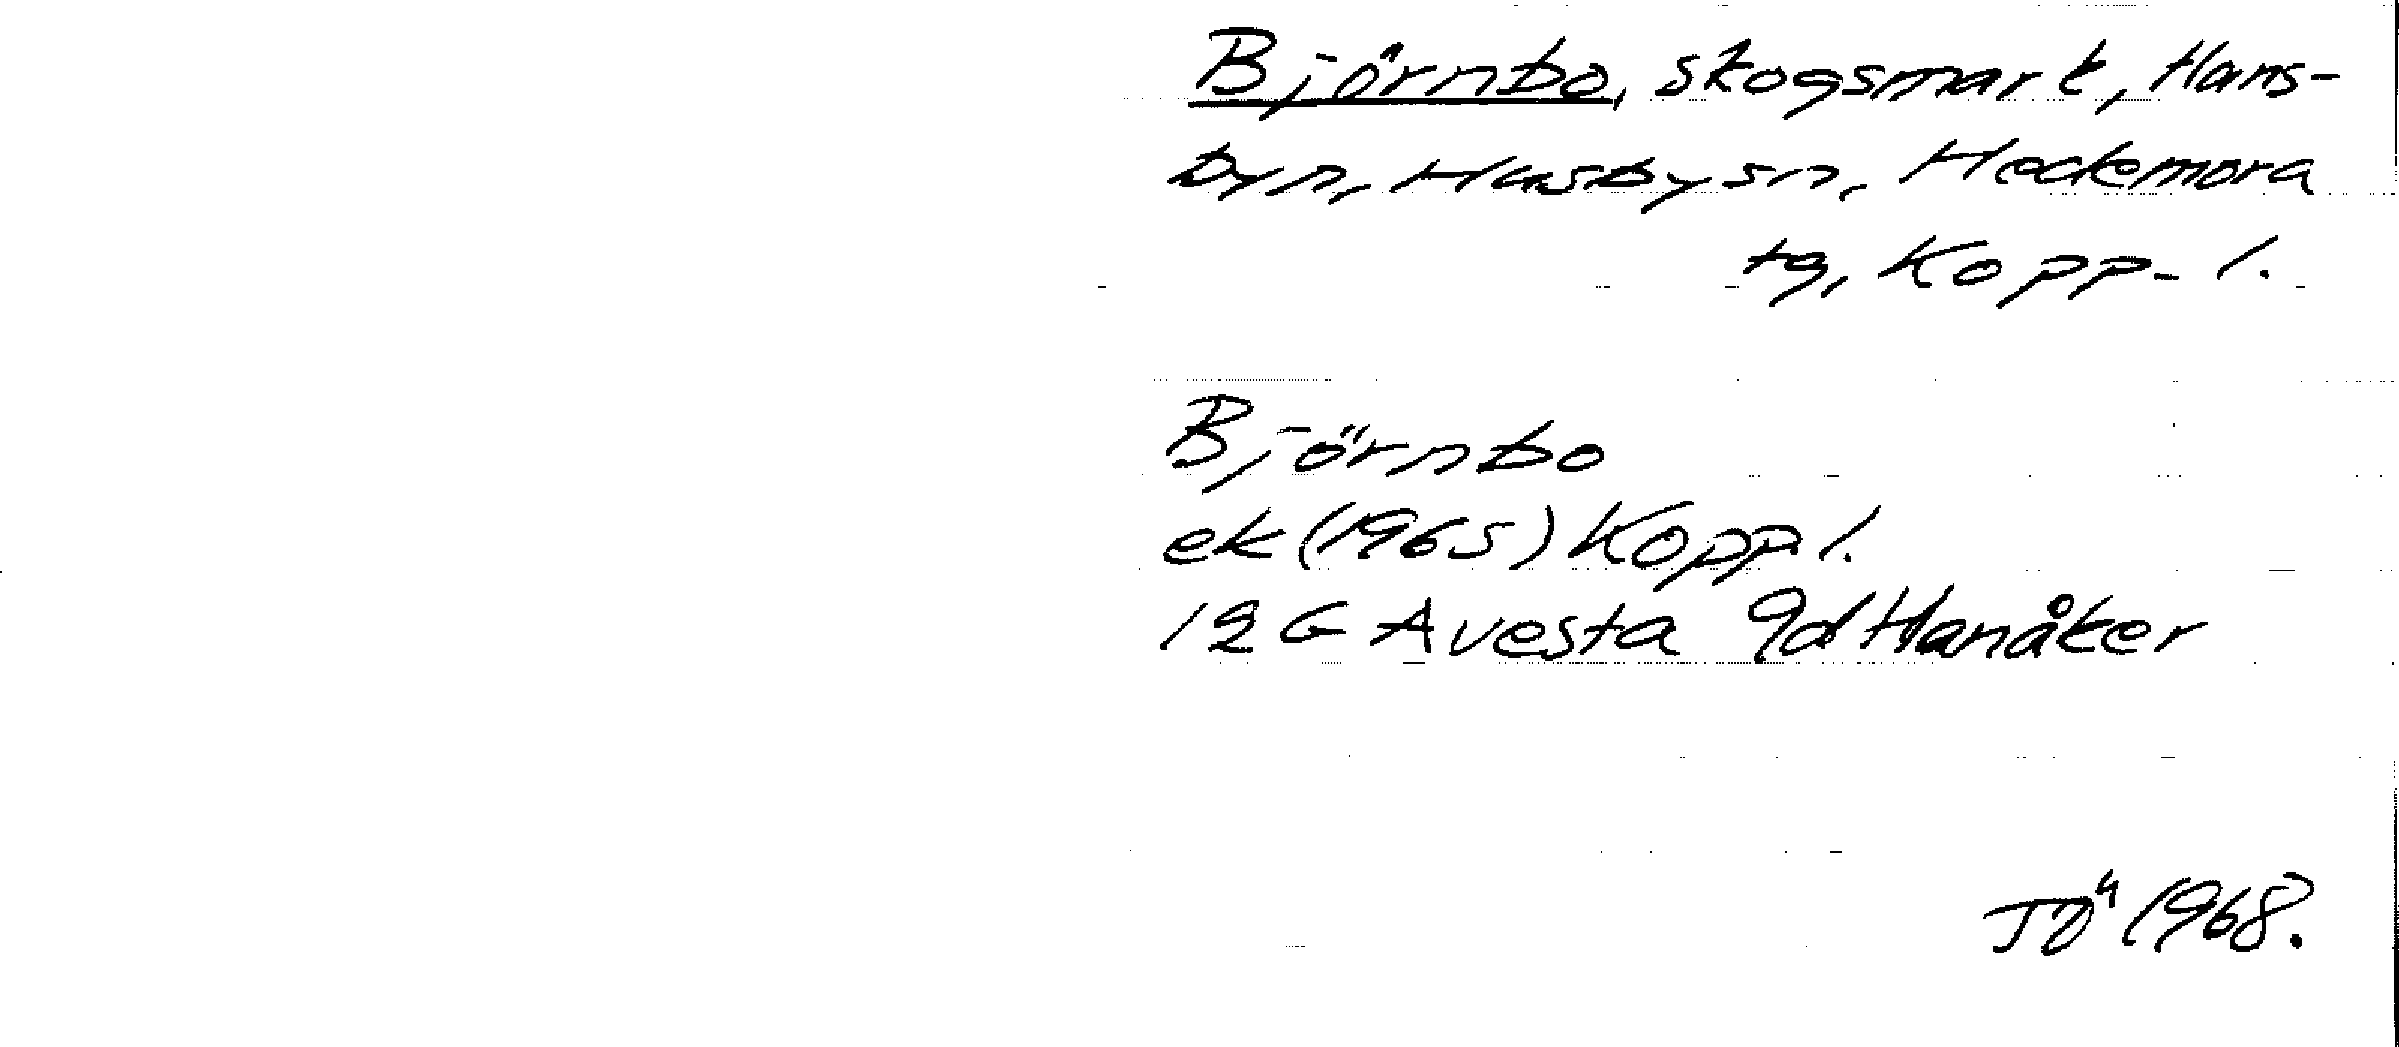 Björnbo, skogsmark, Hans-
byn, Husby sn, Hedemora
tg, Kopp. l.
Björnbo
ek (1965) Kopp l.
12G Avesta 9d Hanåker
JÖ 1968.